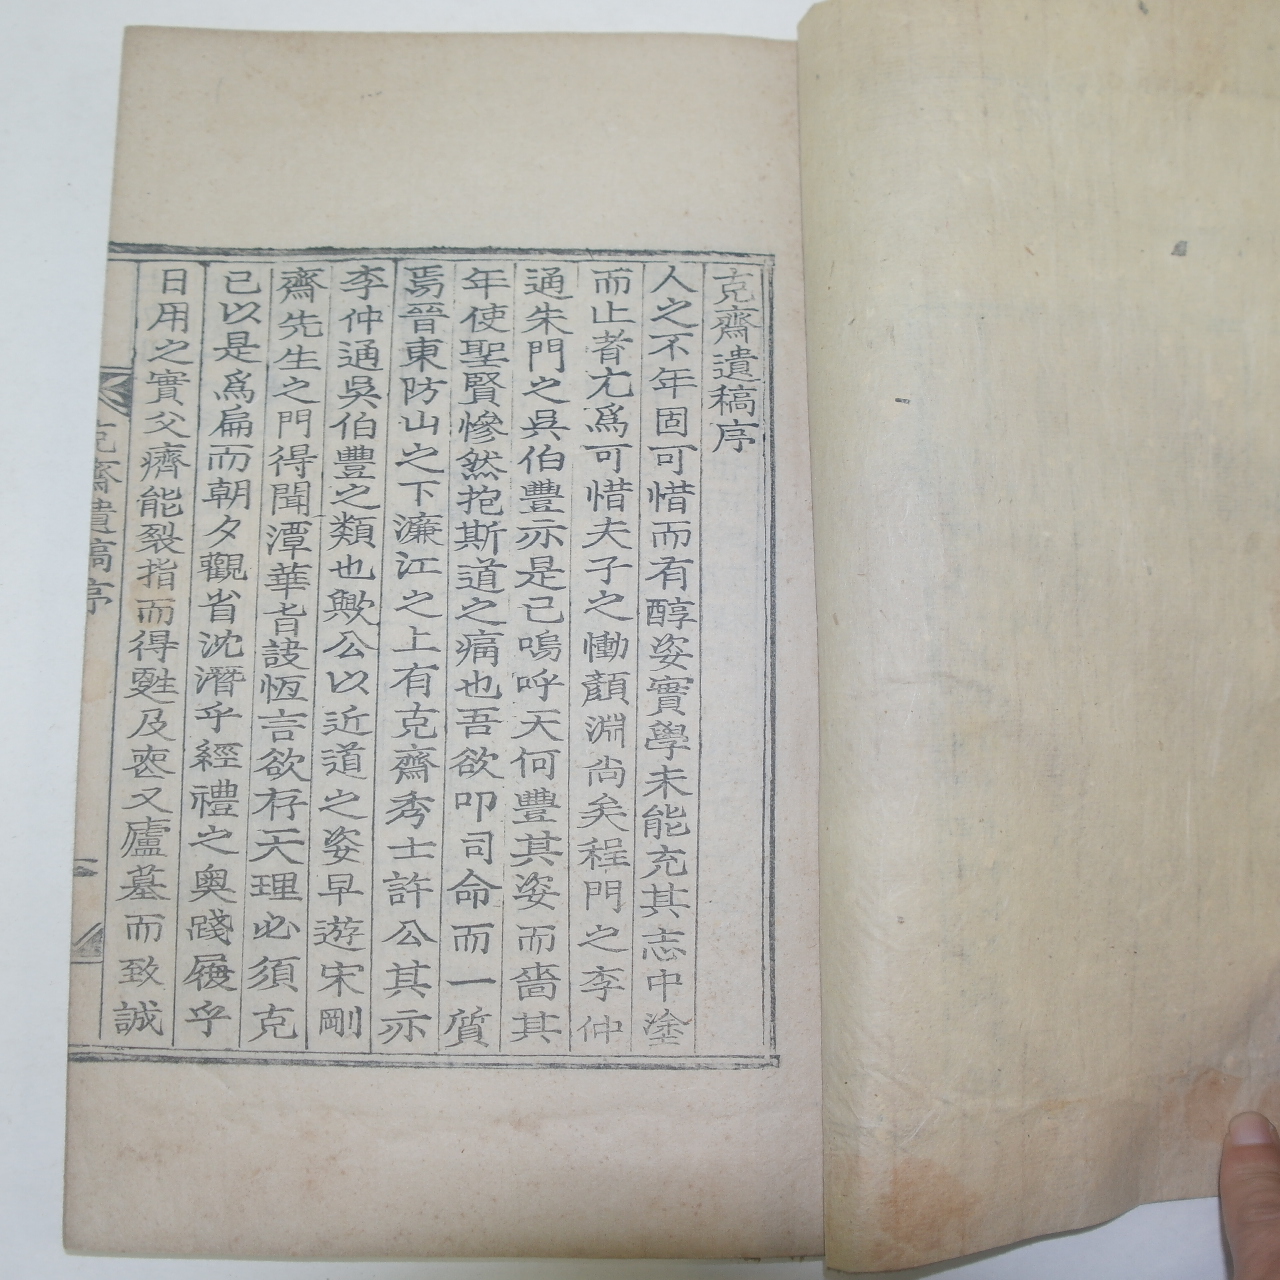 克齋遺稿序
人之不年固可惜而有醇姿實學未能充其志中塗
而止者尤爲可惜夫子之慟顏淵尙矣程門之李仲
通朱門之吳伯豐亦是已嗚呼天何豐其姿而嗇其
年使聖賢慘然抱斯道之痛也吾欲叩司命而一質
焉晉東防山之下濂江之上有克齋秀士許公其亦
李仲通吳伯豐之類也歟公以近道之姿早遊宋剛
齋先生之門得聞潭華旨訣恆言欲存天理必須克
已以是爲扁而朝夕觀省沈潛乎經禮之奧踐履乎
日用之實父癠能裂指而得甦及喪又廬墓而致誠
克齋遺稿序